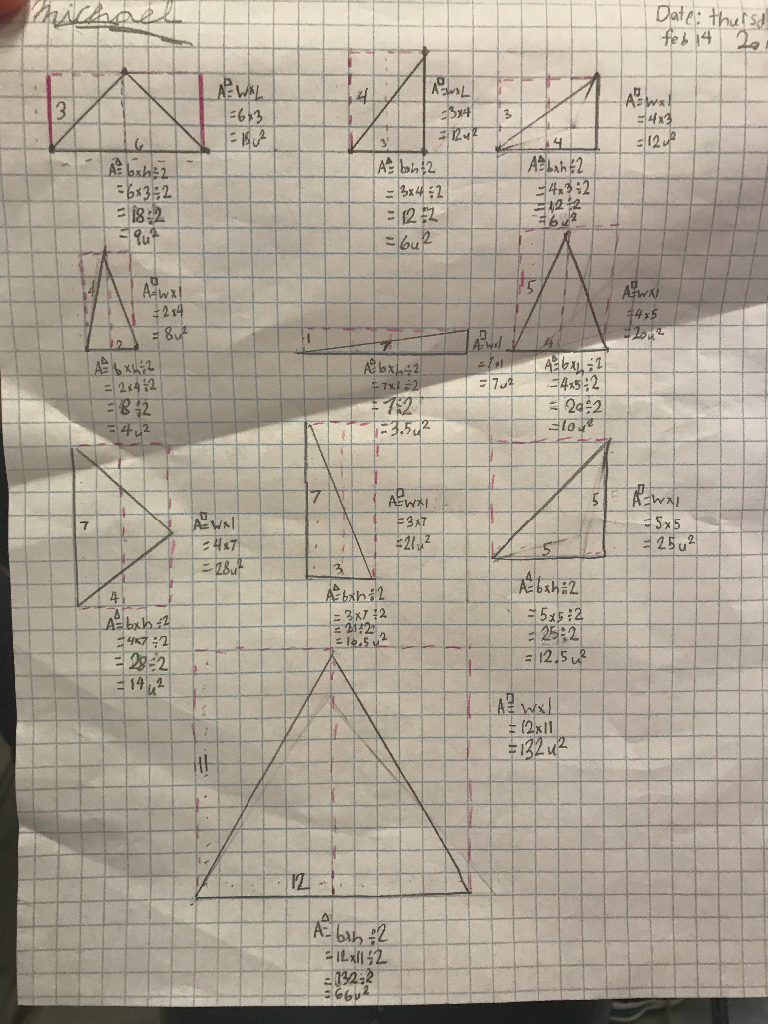 Michael
Date: thursd
feb 14 20
3
6
A□=w×L
=6×3
=18u²
A△=b×h÷2
=6×3÷2
=18÷2
=9u²
4
3
A□=w×L
=3×4
=12u²
A△=b×h÷2
=3×4÷2
=12÷2
=6u²
3
4
A□=w×l
=4×3
=12u²
A△=b×h÷2
=4×3÷2
=12÷2
=6u²
4
2
A□=w×l
=2×4
=8u²
A△=b×h÷2
=2×4÷2
=8÷2
=4u²
1
7
A□=w×l
=7×1
=7u²
A△=b×h÷2
=7×1÷2
=7÷2
=3.5u²
5
4
A□=w×l
=4×5
=20u²
A△=b×h÷2
=4×5÷2
=20÷2
=10u²
7
4
A□=w×l
=4×7
=28u²
A△=b×h÷2
=4×7÷2
=28÷2
=14u²
7
3
A□=w×l
=3×7
=21u²
A△=b×h÷2
=3×7÷2
=21÷2
=10.5u²
5
5
A□=w×l
=5×5
=25u²
A△=b×h÷2
=5×5÷2
=25÷2
=12.5u²
11
12
A□=w×l
=12×11
=132u²
A△=b×h÷2
=12×11÷2
=132÷2
=66u²